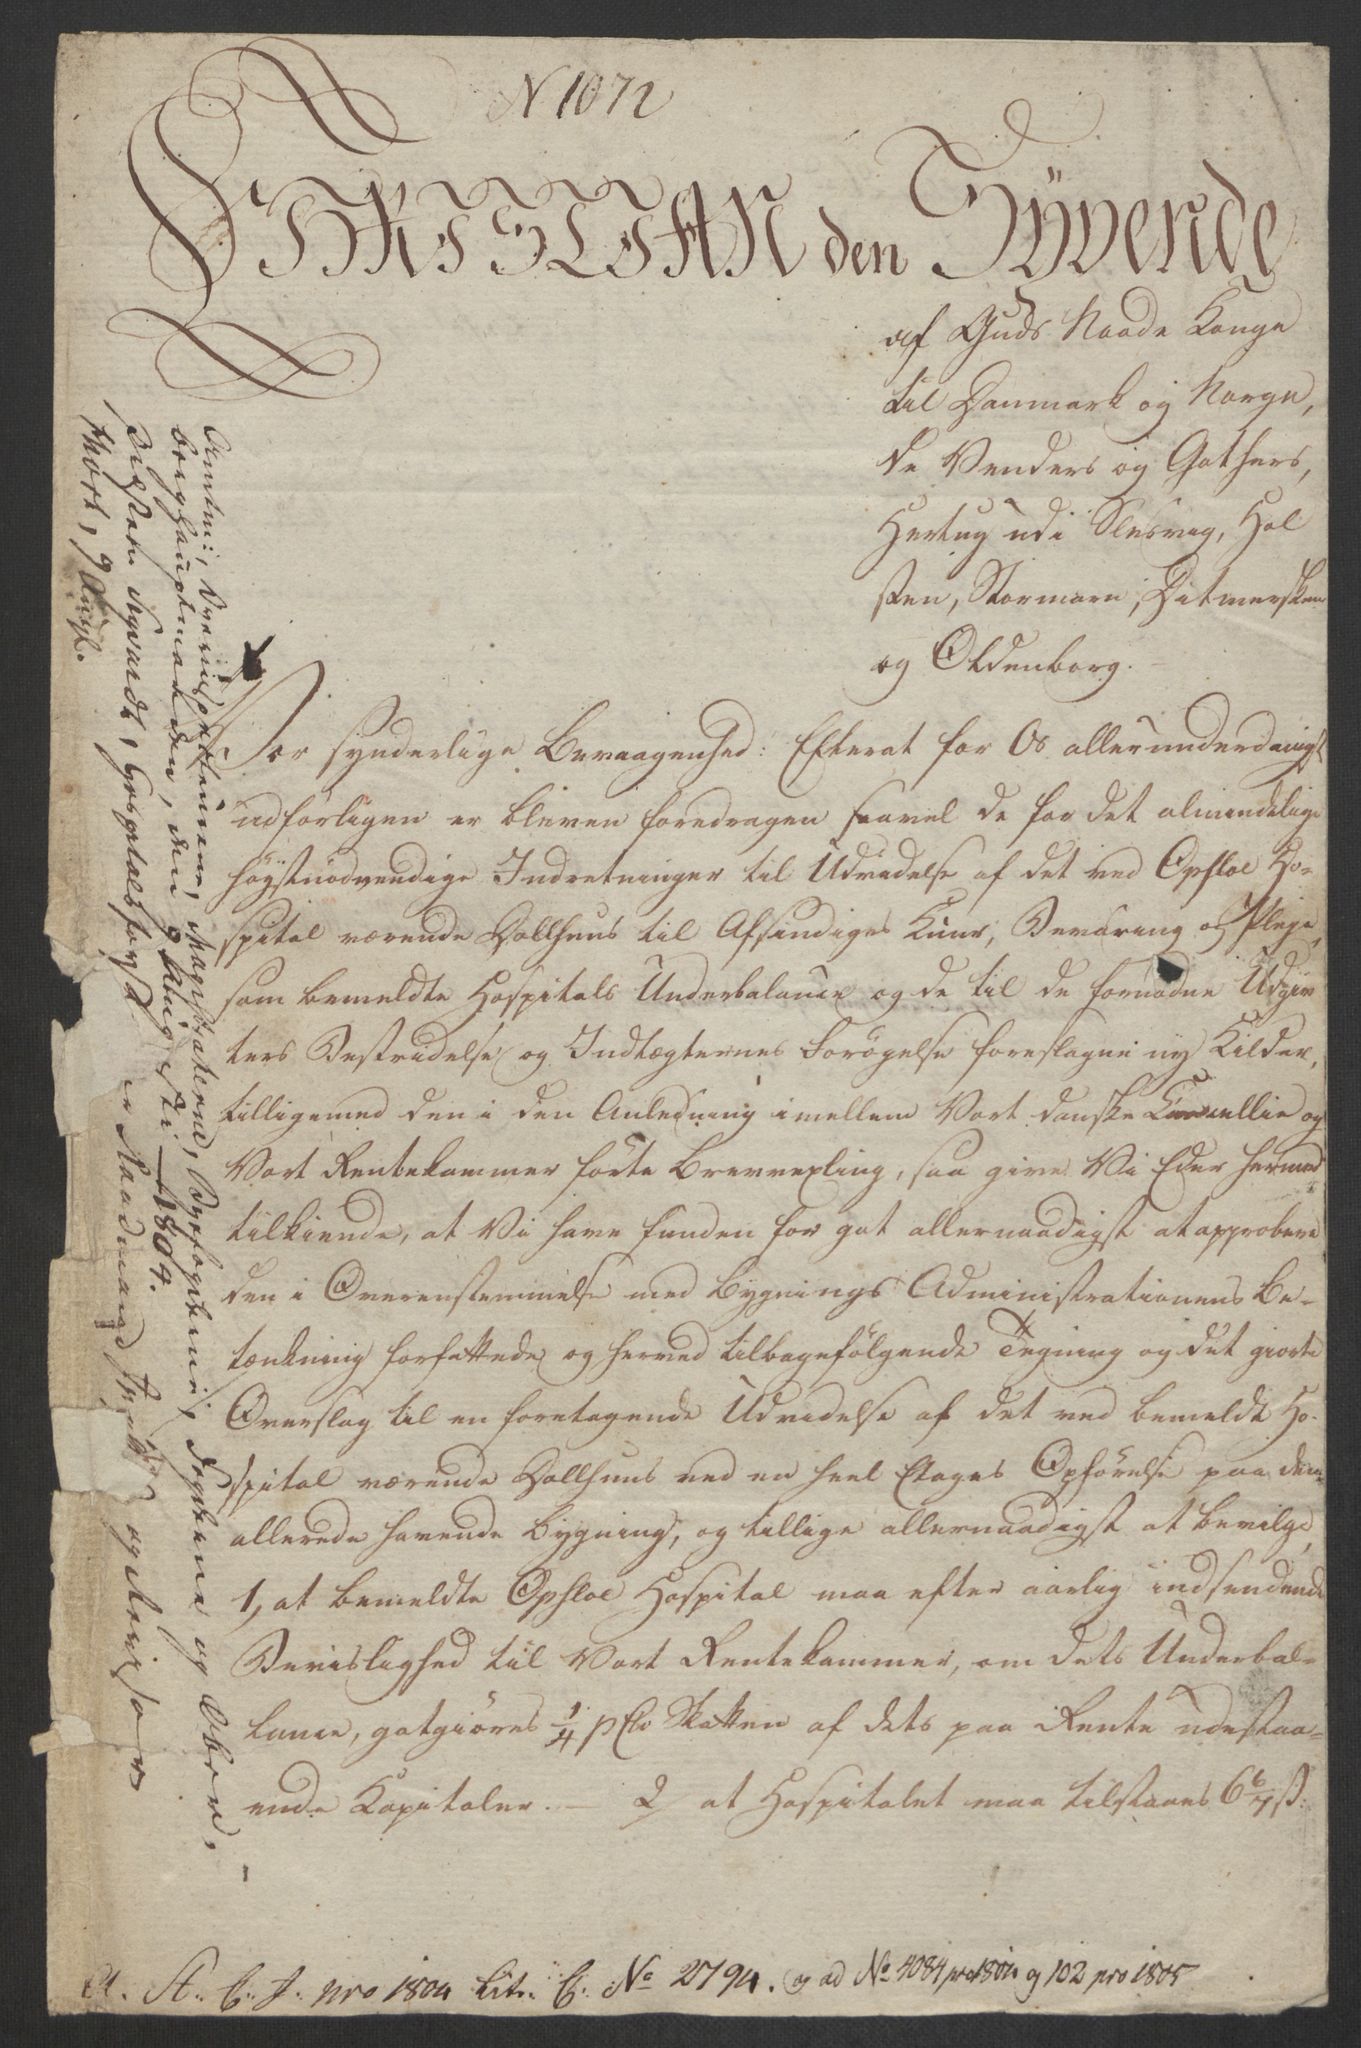 N 1072
CHRISTIAN den Syvende
af Guds Naade Konge
til Danmark og Norge,
de Venders og Gothers,
Hertug udi Slesvig, Hol
sten, Stormarn, Ditmersken
og Oldenborg.
Vor synderlige Bevaagenhed: Efterat for Os allerunderdanigst
udførligen er bleven foredragen saavel de for det almindelige
høystnødvendige Indretninger til Udvidelse af det ved Opsloe Ho-
spital værende Dollhuus til Afsindiges Kuur, Bevaring og Pleje,
som bemeldte Hospitals Underbalance og de til de fornødne Udgiv
ters Bestridelse og Indtægternes Forøgelse foreslagne ny Kilder,
tilligemed den i den Anledning imellem Vort danske Cancellie og
Vort Rentekammer førte Brevvexling, saa give Vi Eder hermed
tilkiende, at Vi have funden for got allernaadigst at approbere
den i Overensstemmelse med Bygnings Administrationens Be-
tænkning forfattede og herved tilbagefølgende Tegning og det giorte
Overslag til en foretagende Udvidelse af det ved bemeldte Ho-
spital værende Dollhuus ved en heel Etages Opførelse paa den
allerede havende Bygning, og tillige allernaadigst at bevilge,
1, at bemeldte Opsloe Hospital maa efter aarlig indsendende
Beviislighed til Vort Rentekammer, om dets Underbal-
lance, godtgiøres 1/4 p Cto Skatten af dets paa Rente udestaa-
ende Kapitaler. — 2/ at Hospitalet maa tilstaaes 6 6/7 ß:
Magistraten, Byefogden, og Ober,
berghauptmanden, den 9 Augusti 1804.
Hospitalsfogd
Raadmand og Revisor
9 Aug.
A. C. J. pro 1804 Litr. C. No 2794. og ad No 4084 pro 1804 og 102 pro 1805